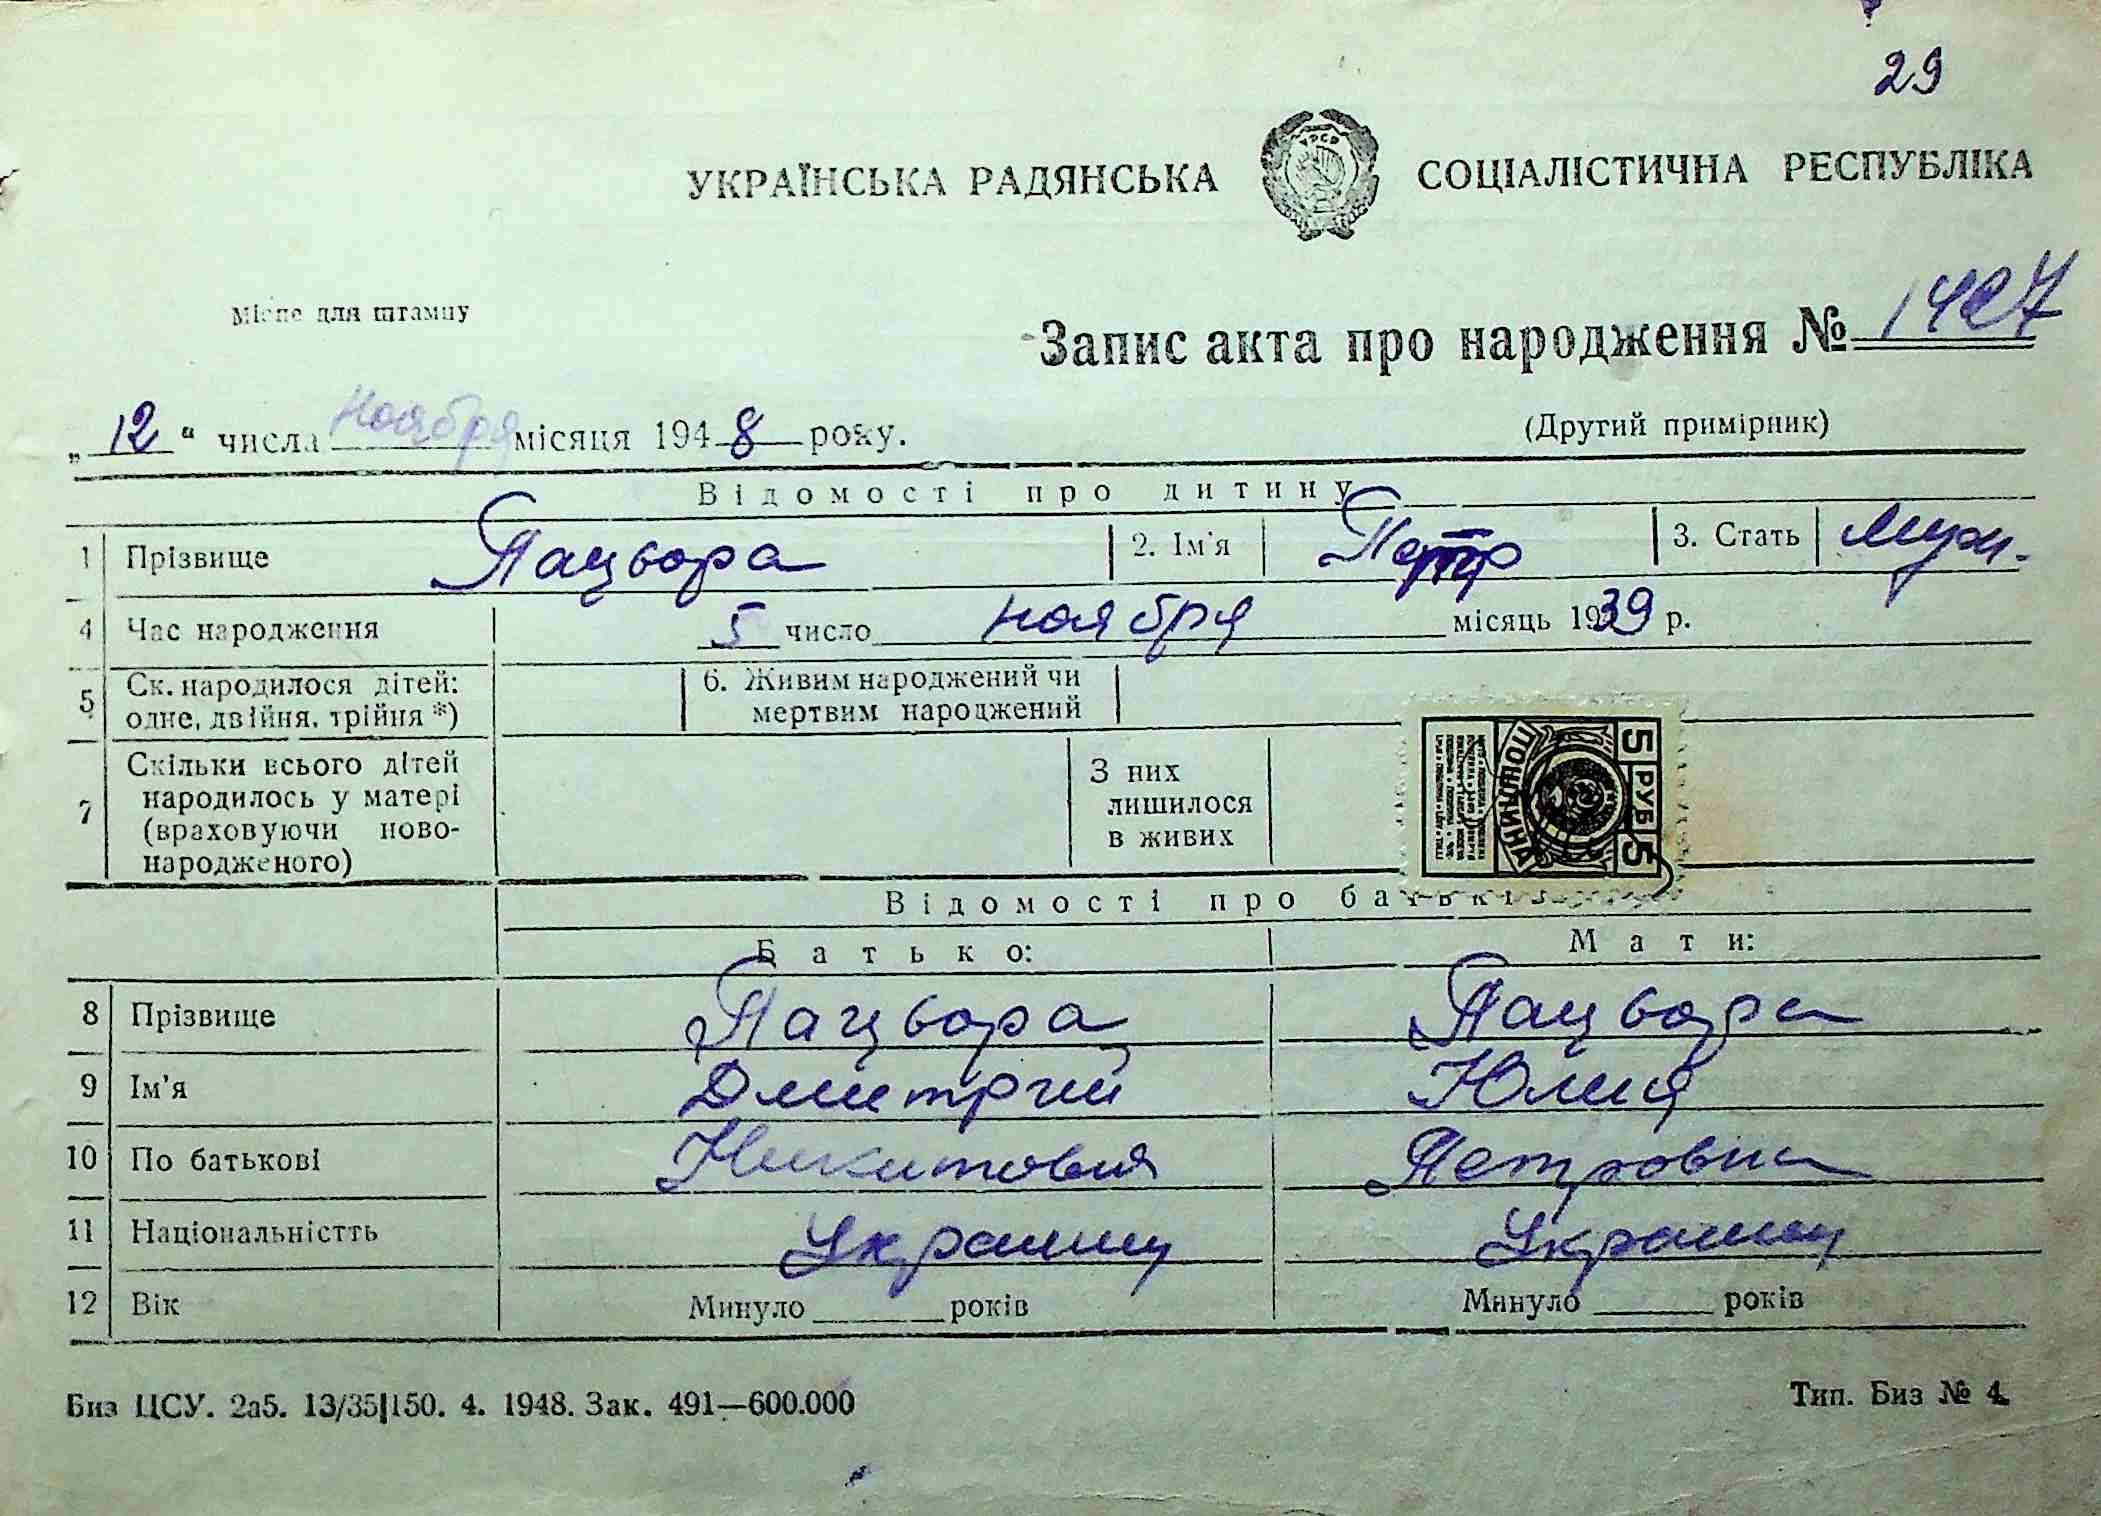 29
УКРАЇНСЬКА РАДЯНСЬКА СОЦІАЛІСТИЧНА РЕСПУБЛІКА
УРСР
Місце для штампу
Запис акта про народження № 1427
„12“ числа ноября місяця 1948 року.
(Другий примірник)
Відомості про дитину
1 Прізвище Пацьора 2. Ім'я Петр 3. Стать муж.
4 Час народження 5 число ноября місяць 1939 р.
5 Ск. народилося дітей: одне, двійня, трійня *) 6. Живим народжений чи мертвим народжений
7 Скільки всього дітей народилось у матері (враховуючи новонародженого) З них лишилося в живих
5 РУБ 5
ПОШЛИНА
Відомості про батьків
Батько: Мати:
8 Прізвище Пацьора Пацьора
9 Ім'я Дмитрий Юлия
10 По батькові Никитович Петровна
11 Національністть Украинц Украинц
12 Вік Минуло років Минуло років
Биз ЦСУ. 2а5. 13/35|150. 4. 1948. Зак. 491—600.000
Тип. Биз № 4.